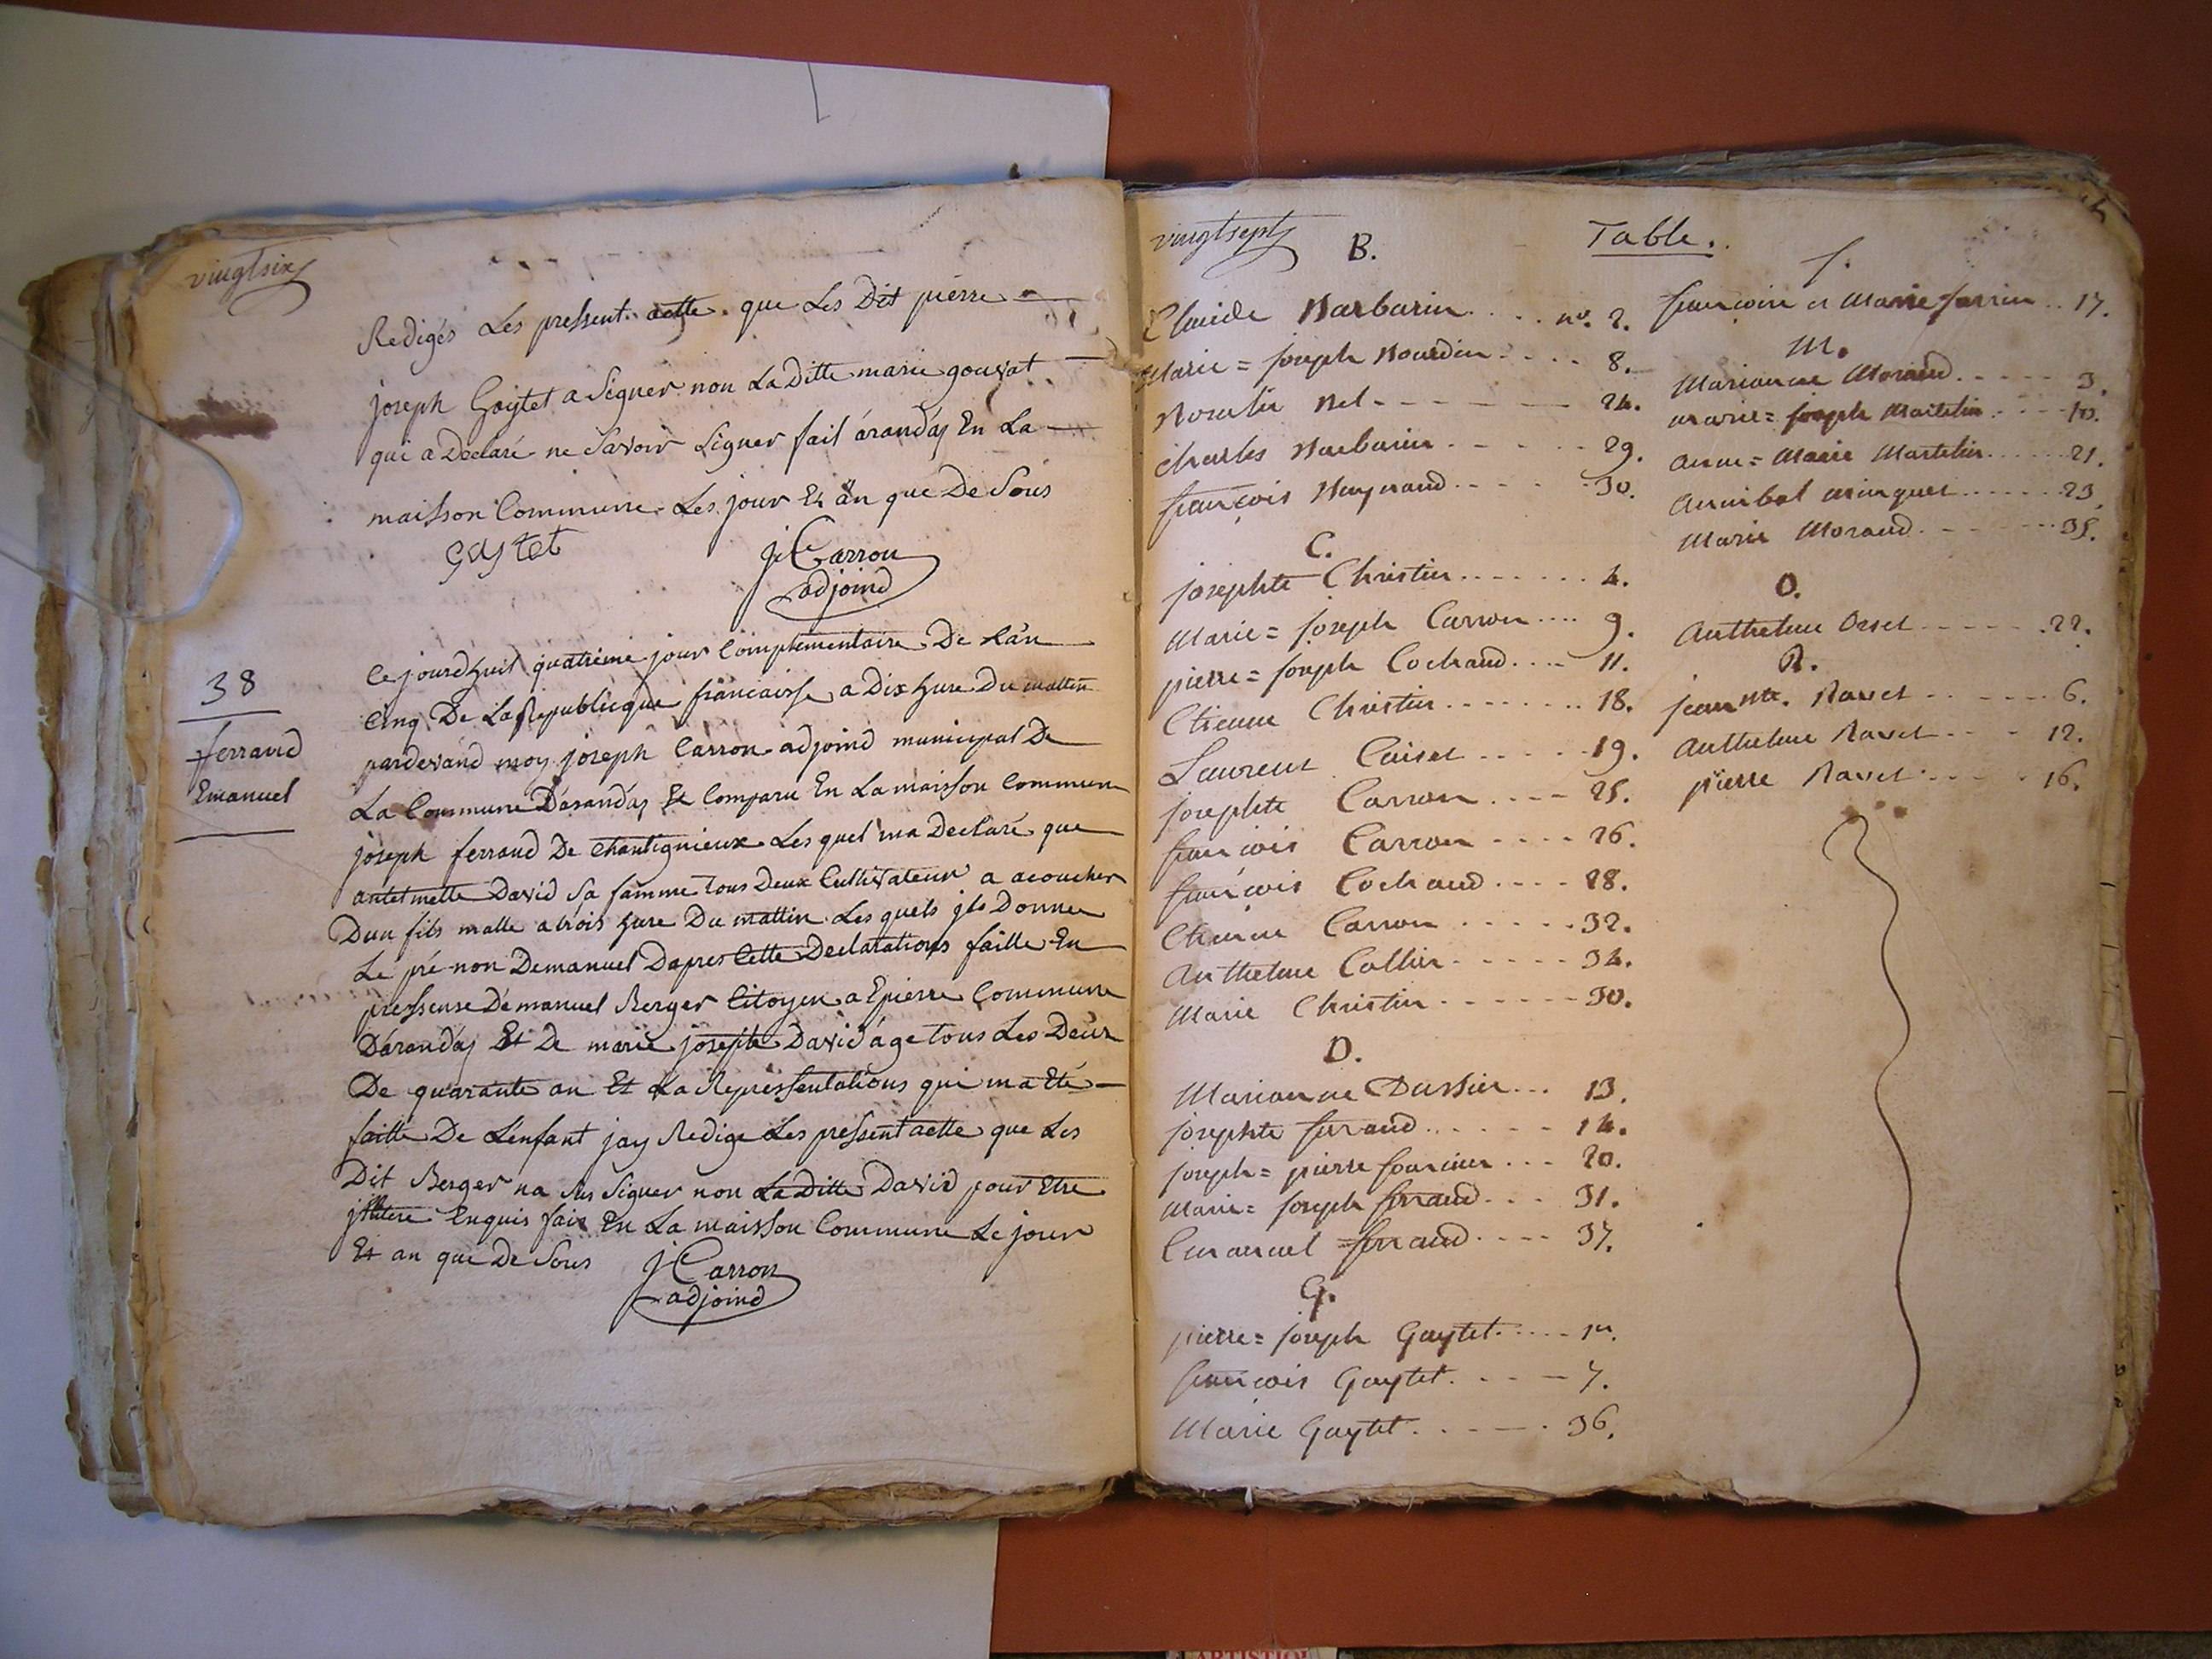 vingtsix
Redigés Les pressent actte que Les Dit pierre
joseph Gaytet a Signer non La Ditte marie gouvat
qui a Declaré ne Savoir Signer fait árandás En La
maisson Commune Les jour Et än que De Sous
gaytet
J Carron
adjoind
38
ferrand
Emanuel
Ce jourdhuit quatriéme jour Complémentaire De Lán
Cinq De La Republicque francaisse a Dix hure Du mattin
pardevand moy joseph Carron adjoind municipal De
La Commune Dárandás Et Comparu En La maisson Commune
joseph ferrand De Chantignieux Les quel ma Declaré que
antelmette David Sa famme tous Deux Cultivateur a acoucher
Dun fils malle a trois hure Du mattin Les quels jls Donner
Le pré non Demanuel Dapres Cette Declarations faille En
pressense Démanuel Berger Citoyen a Epierre Commune
Dárandás Et De marie joseph David áge tous Les Deux
De quarante an Et La Representations qui ma Eté
faitte De Lénfant jay Redige Les pressent actte que Les
Dit Berger na Sus Signer non La Ditte David pour Etre
jlitere Enquis fait En La maisson Commune Le jour
Et an que De Sous
J Carron
adjoind
vingtsept
Table.
B.
Claude Barbarin .... no. 2.
Marie = joseph Bourdin .... 8.
Rosalie Bel ---- 24.
Charles Barbarin ..... 29.
françois Baynaud ..... 30.
C.
josephte Christin ....... 4.
Marie = joseph Carron .... 9.
pierre = joseph Cochaud .... 11.
Etienne Christin ........ 18.
Laurent Caiset ..... 19.
josephte Carron .... 25.
françois Carron .... 26.
françois Cochaud .... 28.
Etienne Carron ..... 32.
Anthelme Collier ..... 34.
Marie Christin ....... 30.
D.
Marianne Dussier ... 13.
josephte ferrand ...... 14.
joseph = pierre fournier ... 20.
Marie = joseph ferrand ... 31.
Emanuel ferrand .... 37.
G.
pierre = joseph Gaytet ..... 1er.
françois Gaytet .... 7.
Marie Gaytet ..... 36.
f.
françoise et Marie ferrier .. 17.
M.
Marianne Morand ..... 3.
marie = joseph Martelin .... 10.
Anne = Marie Martelin ..... 21.
Annibal minguet ...... 23.
Marie Morand ....... 35.
O.
Anthelme Orset ....... 22.
R.
jean mie. Ravet ....... 6.
Anthelme Ravet .... 12.
pierre Ravet ..... 16.